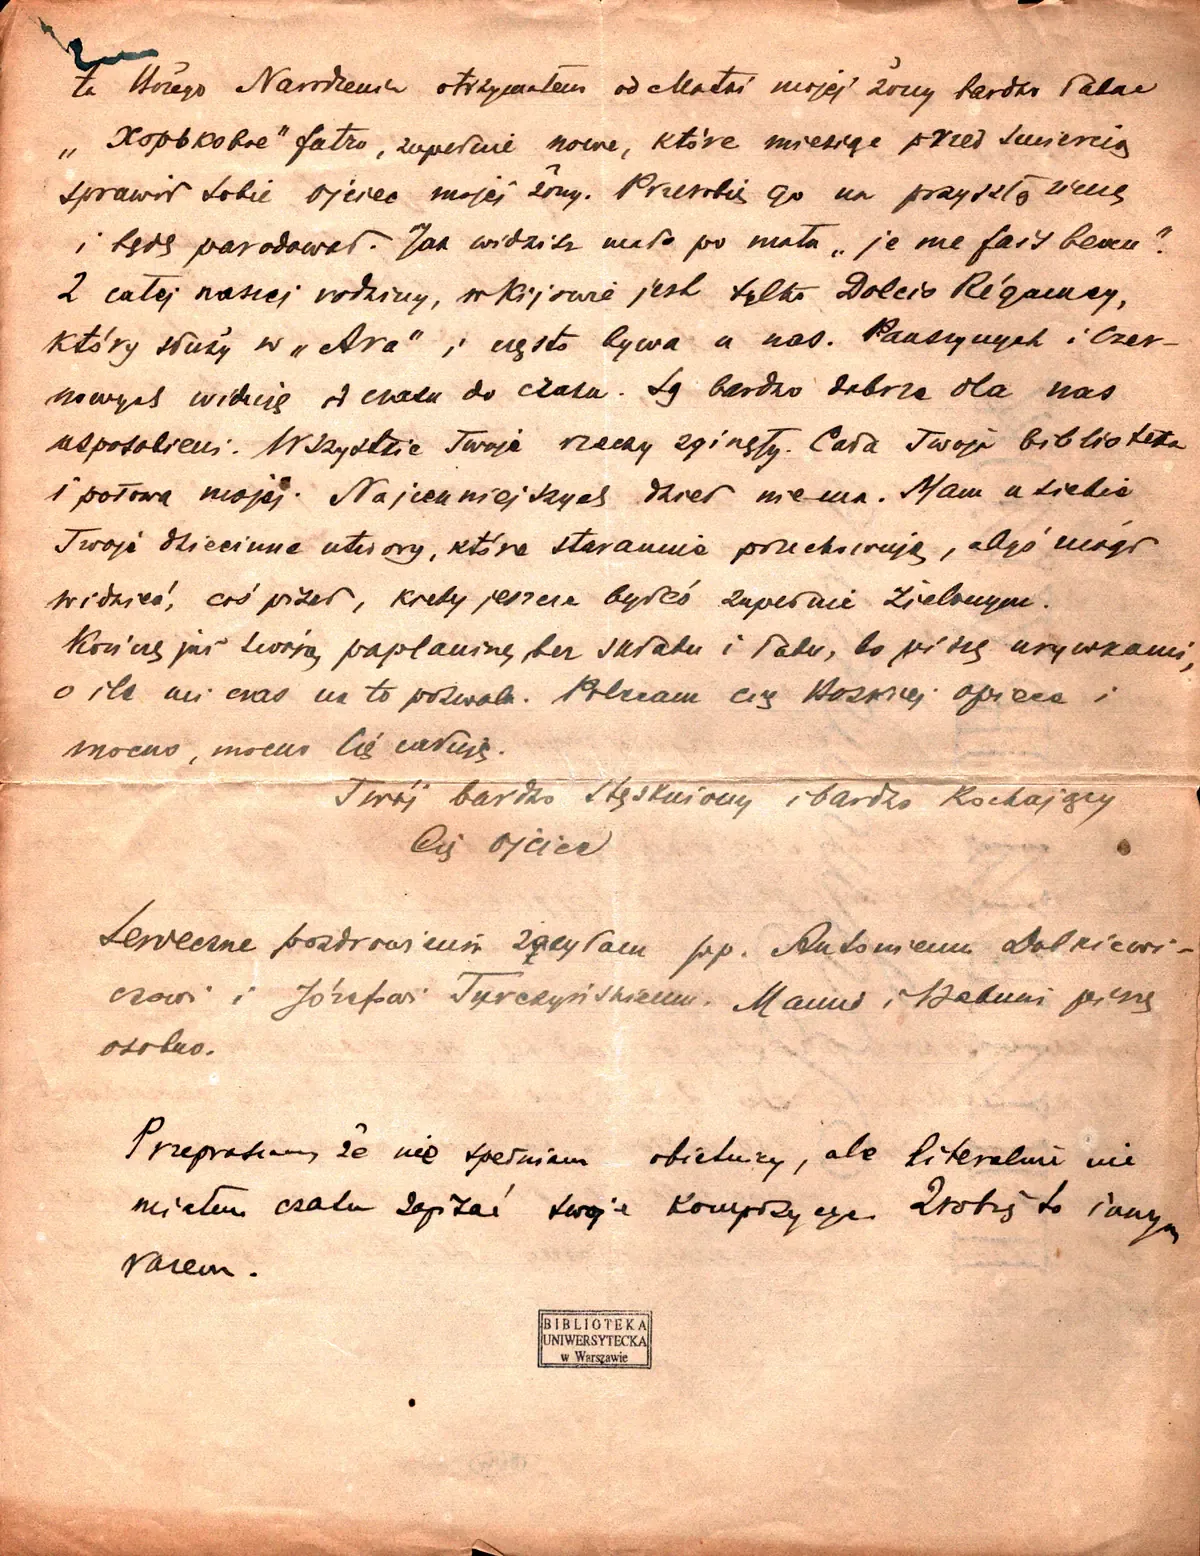 ta Bożego Narodzenia otrzymałem od Matki mojej żony bardzo ładne
„Хорьковое" futro, zupełnie nowe, które miesiąc przed śmiercią
sprawił sobie ojciec mojej żony. Przerobię go na przyszłą zimę
i będę paradował. Jak widzisz mało po mału „je me fais beau".
Z całej naszej rodziny, w Kijowie jest tylko Dolcio Régamey,
który służy w „Ara" i często bywa u nas. Pauszynych i Czer-
nowych widuję od czasu do czasu. Są bardzo dobrze dla nas
usposobieni. Wszystkie Twoje rzeczy zginęły. Cała Twoja biblioteka
i połowa mojej. Najcenniejszych dzieł niema. Mam u siebie
Twoje dziecinne utwory, które starannie przechowuję, abyś mógł
widzieć, coś pisał, kiedy jeszcze byłeś zupełnie zielonym.
Kończę już swoją paplaninę bez składu i ładu, bo piszę urywkami,
o ile mi czas na to pozwala. Polecam cię Boskiej opiece i
mocno, mocno Cię całuję.
Twój bardzo stęskniony i bardzo kochający
Cię ojciec
Serdeczne pozdrowienia zasyłam pp. Antoniemu
i Józefowi Turczyńskiemu. Mamie i Babuni piszę
osobno.
Przepraszam że nie spełniam obietnicy, ale literalnie nie
miałem czasu zapisać swoje kompozycje. Zrobię to innym
razem.
BIBLIOTEKA
UNIWERSYTECKA
w Warszawie